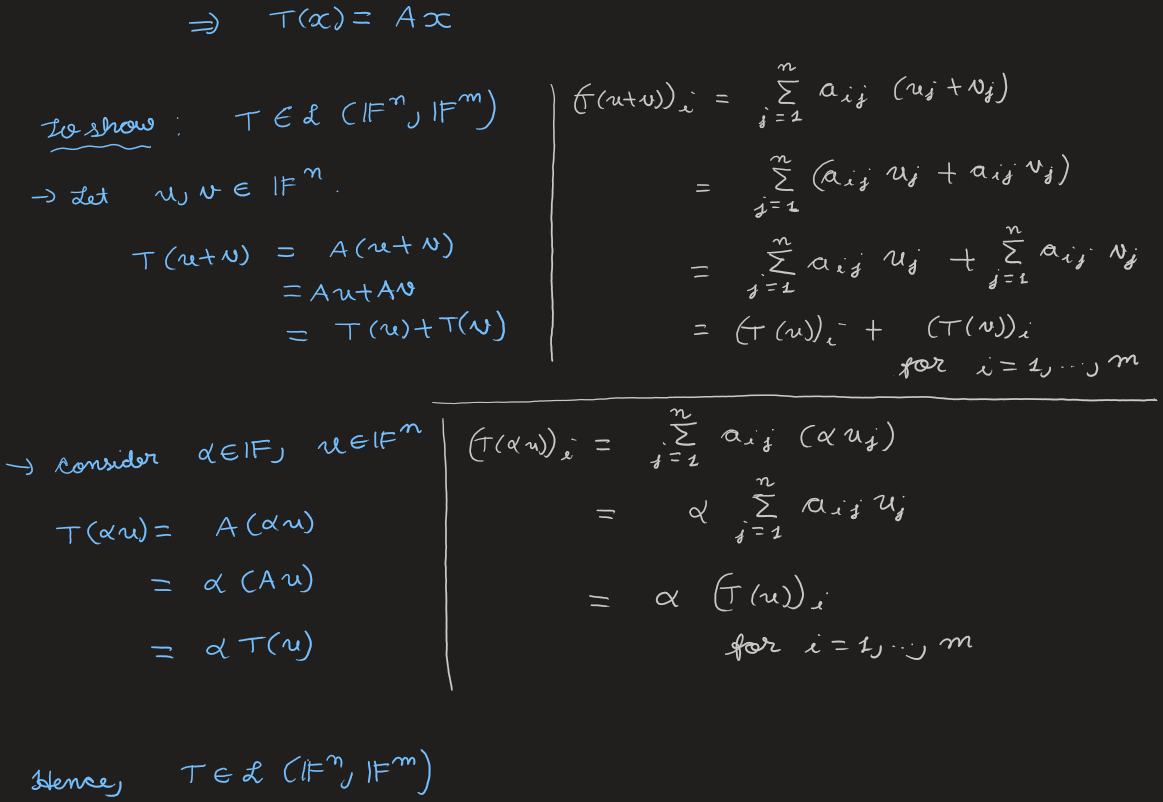 ⇒ T(x) = Ax
To show : T ∈ ℒ (𝔽ⁿ, 𝔽ᵐ)
→ Let u, v ∈ 𝔽ⁿ.
T(u+v) = A(u+v)
= Au+Av
= T(u)+T(v)
(T(u+v))ᵢ = ∑ⱼ₌₁ⁿ aᵢⱼ (uⱼ+vⱼ)
= ∑ⱼ₌₁ⁿ (aᵢⱼ uⱼ + aᵢⱼ vⱼ)
= ∑ⱼ₌₁ⁿ aᵢⱼ uⱼ + ∑ⱼ₌₁ⁿ aᵢⱼ vⱼ
= (T(u))ᵢ + (T(v))ᵢ
for i = 1, ..., m
→ Consider α ∈ 𝔽, u ∈ 𝔽ⁿ
T(αu) = A(αu)
= α (Au)
= α T(u)
(T(αu))ᵢ = ∑ⱼ₌₁ⁿ aᵢⱼ (α uⱼ)
= α ∑ⱼ₌₁ⁿ aᵢⱼ uⱼ
= α (T(u))ᵢ
for i = 1, ..., m
Hence, T ∈ ℒ (𝔽ⁿ, 𝔽ᵐ)